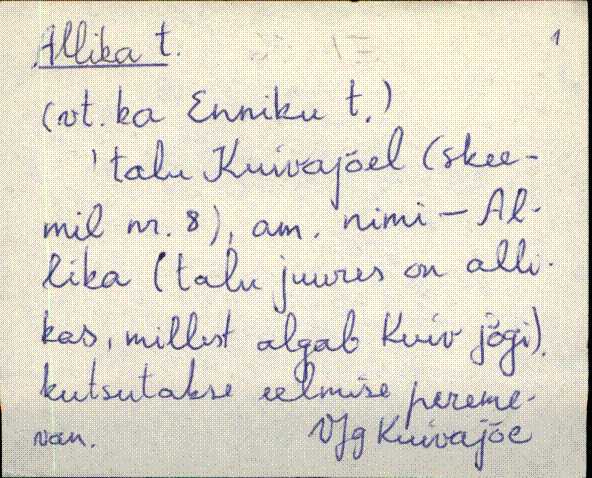 Allika t. 1
(vt. ka Enniku t.)
'talu Kuivajõel (skee-
mil nr. 8), am. nimi – Al-
lika (talu juures on alli-
kas, millest algab Kuiv jõgi).
kutsutakse eelmise pereme-
van. VJg Kuivajõe